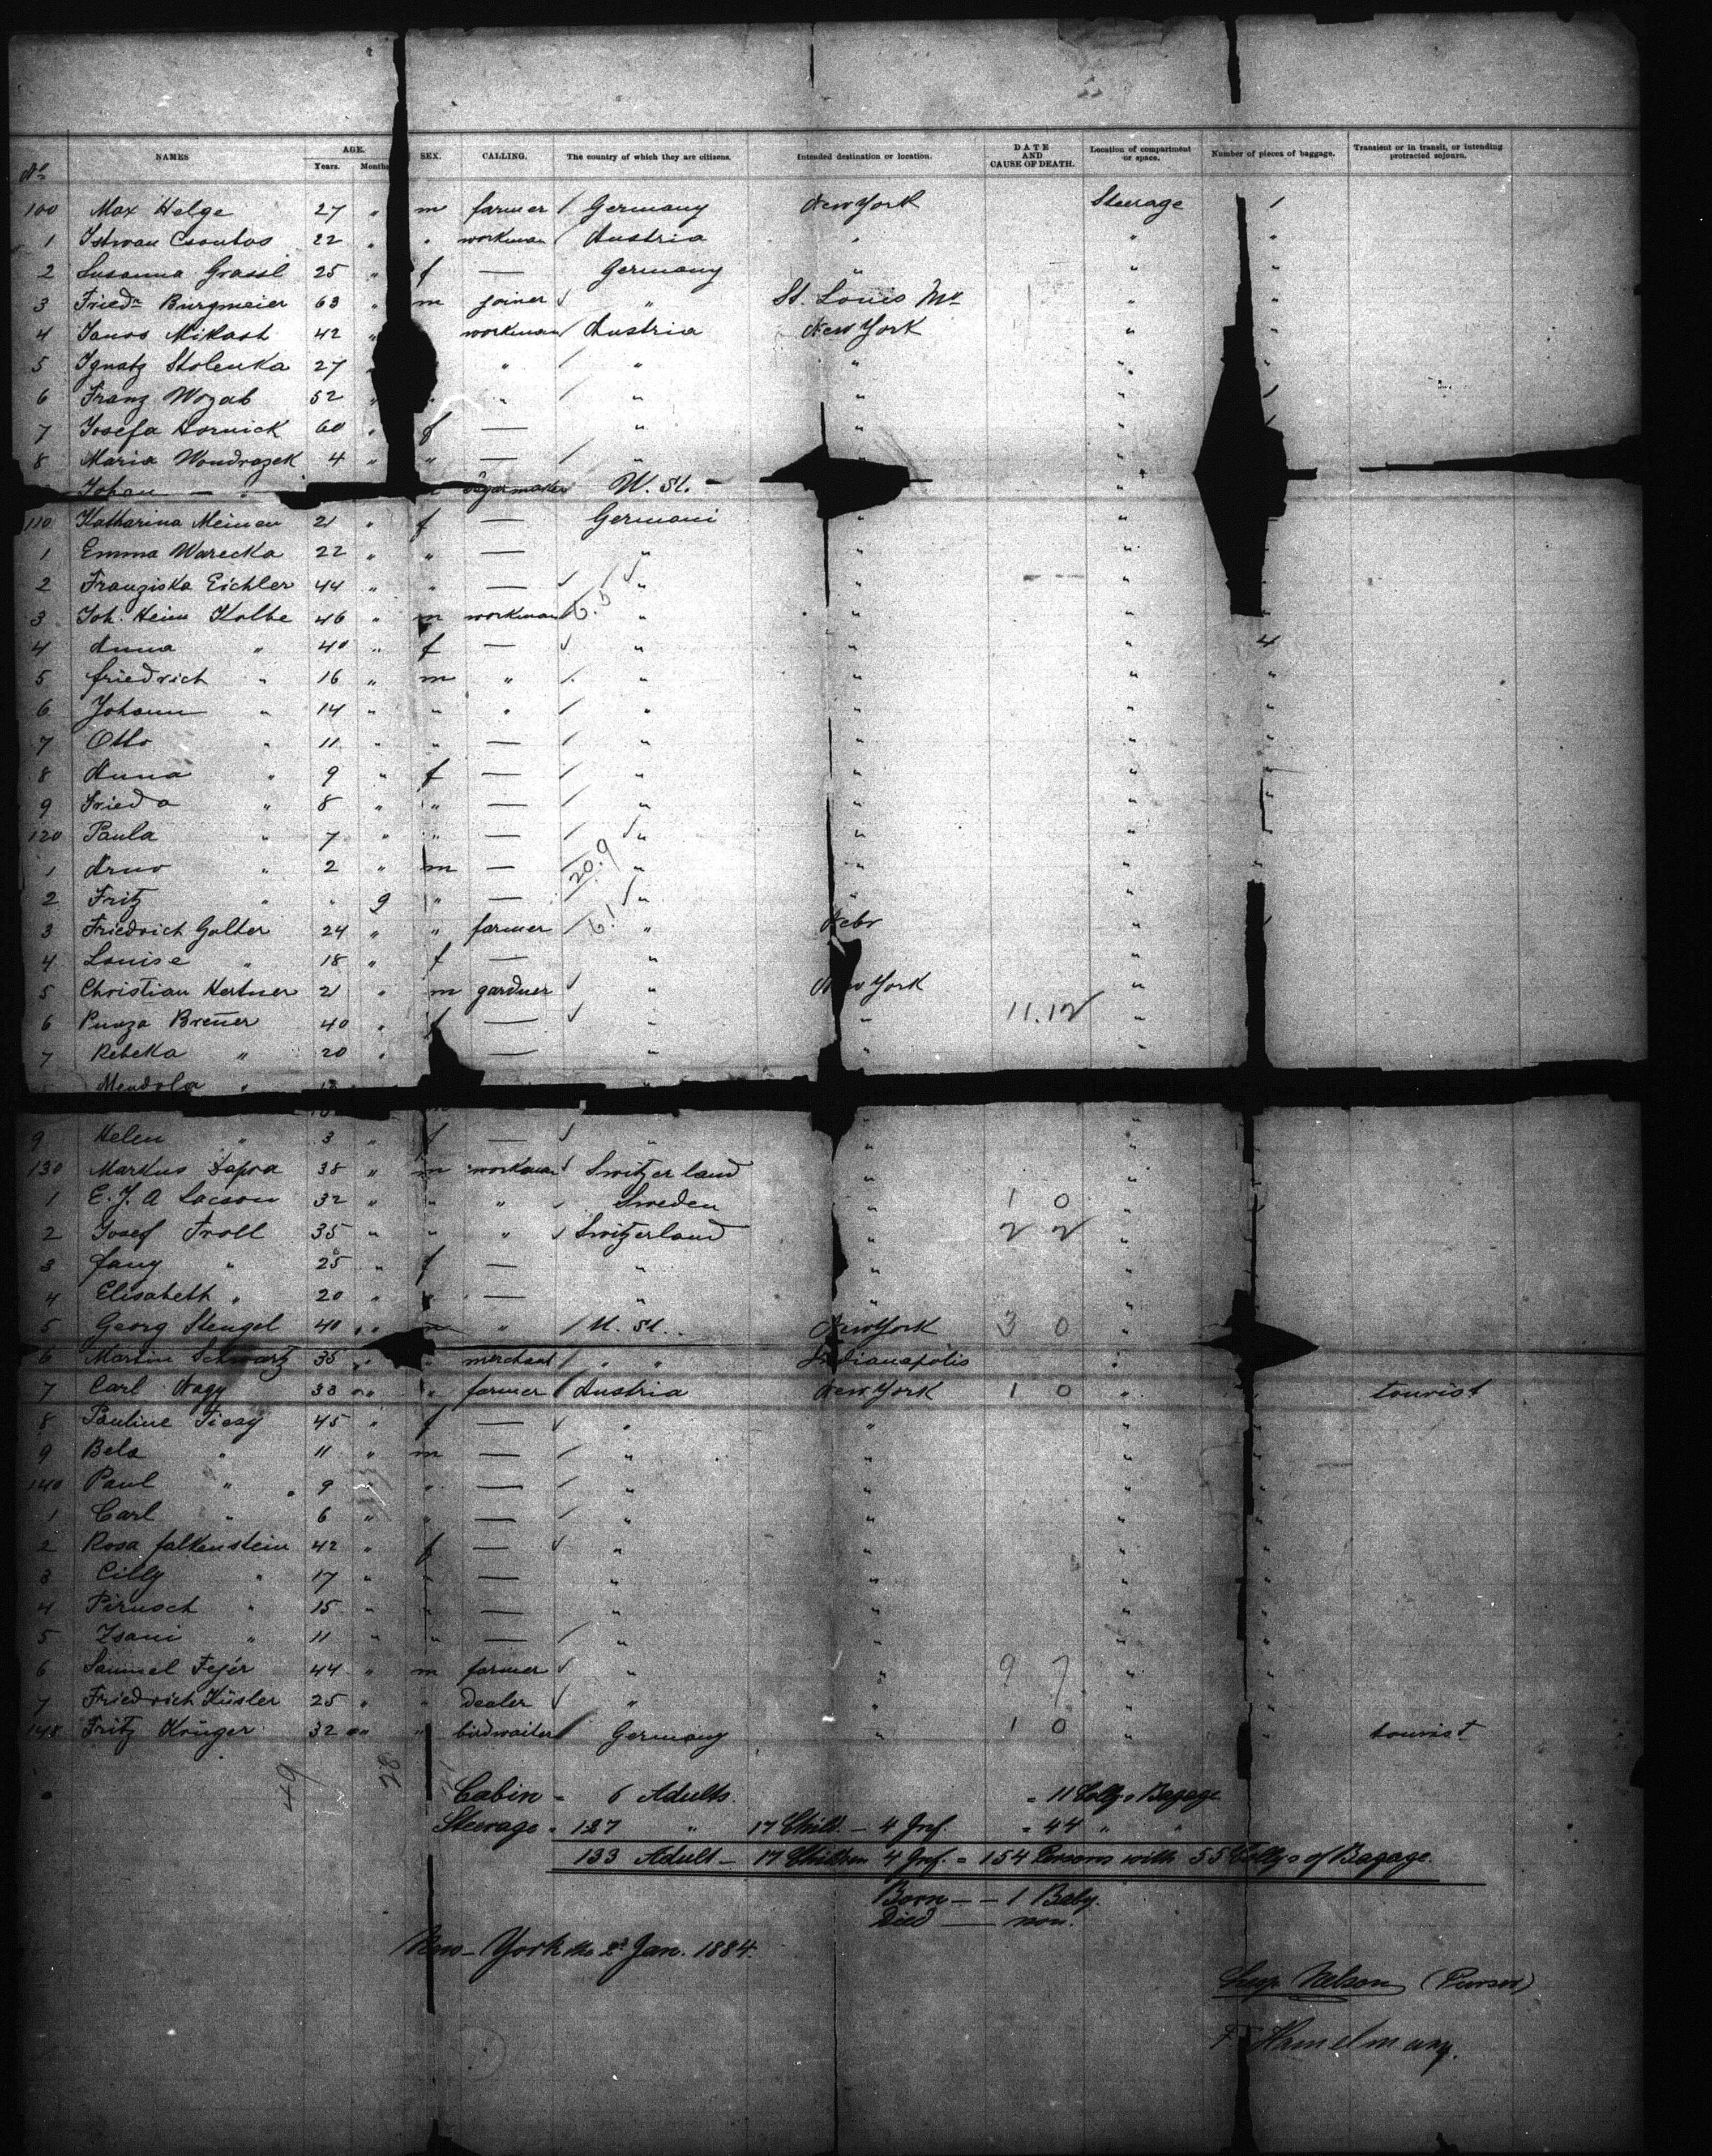 No NAMES AGE. Years. Months SEX. CALLING. The country of which they are citizens. Intended destination or location. DATE AND CAUSE OF DEATH. Location of compartment or space. Number of pieces of baggage. Transient or in transit, or intending protracted sojourn.
100 Max Helge 27 " m farmer / Germany New York Steerage 1
1 Istwan Csontos 22 " " workman / Austria " " "
2 Susanna Grassl 25 " f — Germany " " "
3 Friedr Burgmeier 63 " m joiner √ " St. Louis Mo " "
4 Janos Mikast 42 " workman / Austria New York " "
5 Ignatz Stolenka 27 " " / " " " "
6 Franz Wozab 52 " " " / " " " 1
7 Josefa Hornick 60 " f — " " "
8 Maria Wondrazek 4 " " — / " " "
Johan — " U. St. — "
110 Katharina Meinen 21 " f — Germani " "
1 Emma Warecka 22 " " — " " "
2 Franziska Eichler 44 " " — √ " " "
3 Joh. Heinr Kolbe 46 " m workman / " " " "
4 Anna " 40 " f — √ " " " 4
5 friedrich " 16 " m " / " " " "
6 Johann " 14 " " " / " " " "
7 Otto " 11 " " — / " " " "
8 Anna " 9 " f — / " " " "
9 Frieda " 8 " " — / " " " "
120 Paula " 7 " " — / " " "
1 Arno " 2 " m — / 20.9 " " " "
2 Fritz " " 9 " — / " " " "
3 Friedrich Golter 24 " " farmer / 6.1 " Nebr " 1
4 Louise " 18 " f — " "
5 Christian Hertner 21 " m gardner √ " New York "
6 Brener 40 " f — √ " " 11.12 "
7 Rebeka " 20 " — " " "
Mendola "
9 Helen " 3 " f — √ " " "
130 Markus 38 " m workman √ Switzerland " "
1 E. J. A Lacson 32 " " " / Sweden " 1 0 "
2 Josef Troll 35 " " " √ Switzerland " 2 2 "
3 fany " 25 " f — " " "
4 Elisabeth " 20 " " — " " "
5 Georg Stengel 40 " m " / U. St. New York 3 0 "
6 Martin Schwartz 35 " " merchant / " " Indianapolis "
7 Carl Nagy 33 " " farmer / Austria New York 1 0 " " tourist
8 Pauline 45 " f — √ " " " "
9 Bela " 11 " m — / " " " "
140 Paul " 9 " " — / " " " "
1 Carl " 6 " " — / " " " "
2 Rosa falkenstein 42 " f — √ " " " "
3 Cilly " 17 " " — " " " "
4 Pirusch " 15 " " — " " " "
5 Zsani " 11 " " — / " " " "
6 Samuel Fejér 44 " m farmer √ " " 9 7 " "
7 Friedrich Küsler 25 " " dealer √ " " " "
148 Fritz Krüger 32 " " birdwaiter / Germany " 1 0 " " tourist
49 28
Cabin = 6 Adults = 11 Collys Bagage
Steerage = 127 " 17 Child. — 4 Inf. = 44 " "
133 Adult — 17 Children 4 Inf. = 154 Persons with 55 Collys of Bagage.
Born — — 1 Baby.
Died — non.
New-York the 2d Jan. 1884.
Nelson (Purser)
F Hamelmann.